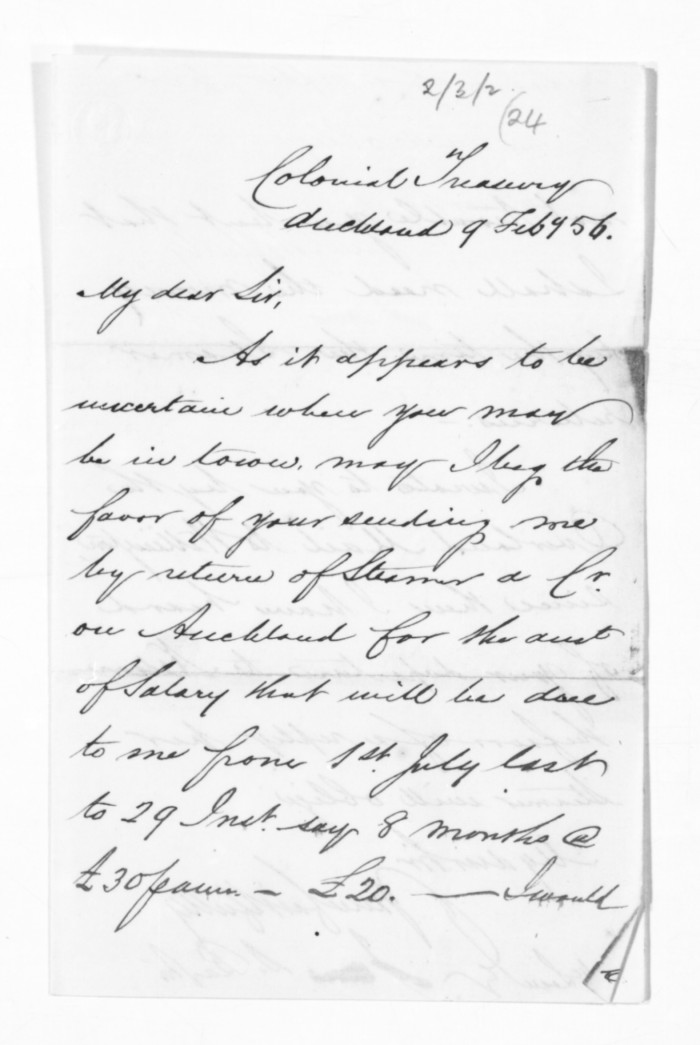 2/3/2.
(24
Colonial Treasury
Auckland 9 Feby 56.
My dear Sir,
As it appears to be
uncertain when you may
be in town, may I beg the
favor of your sending me
by return of Steamer a Cr.
on Auckland for the amt
of Salary that will be due
to me from 1st. July last
to 29 Inst. say 8 months @
£30 p annm. — £20. — I would